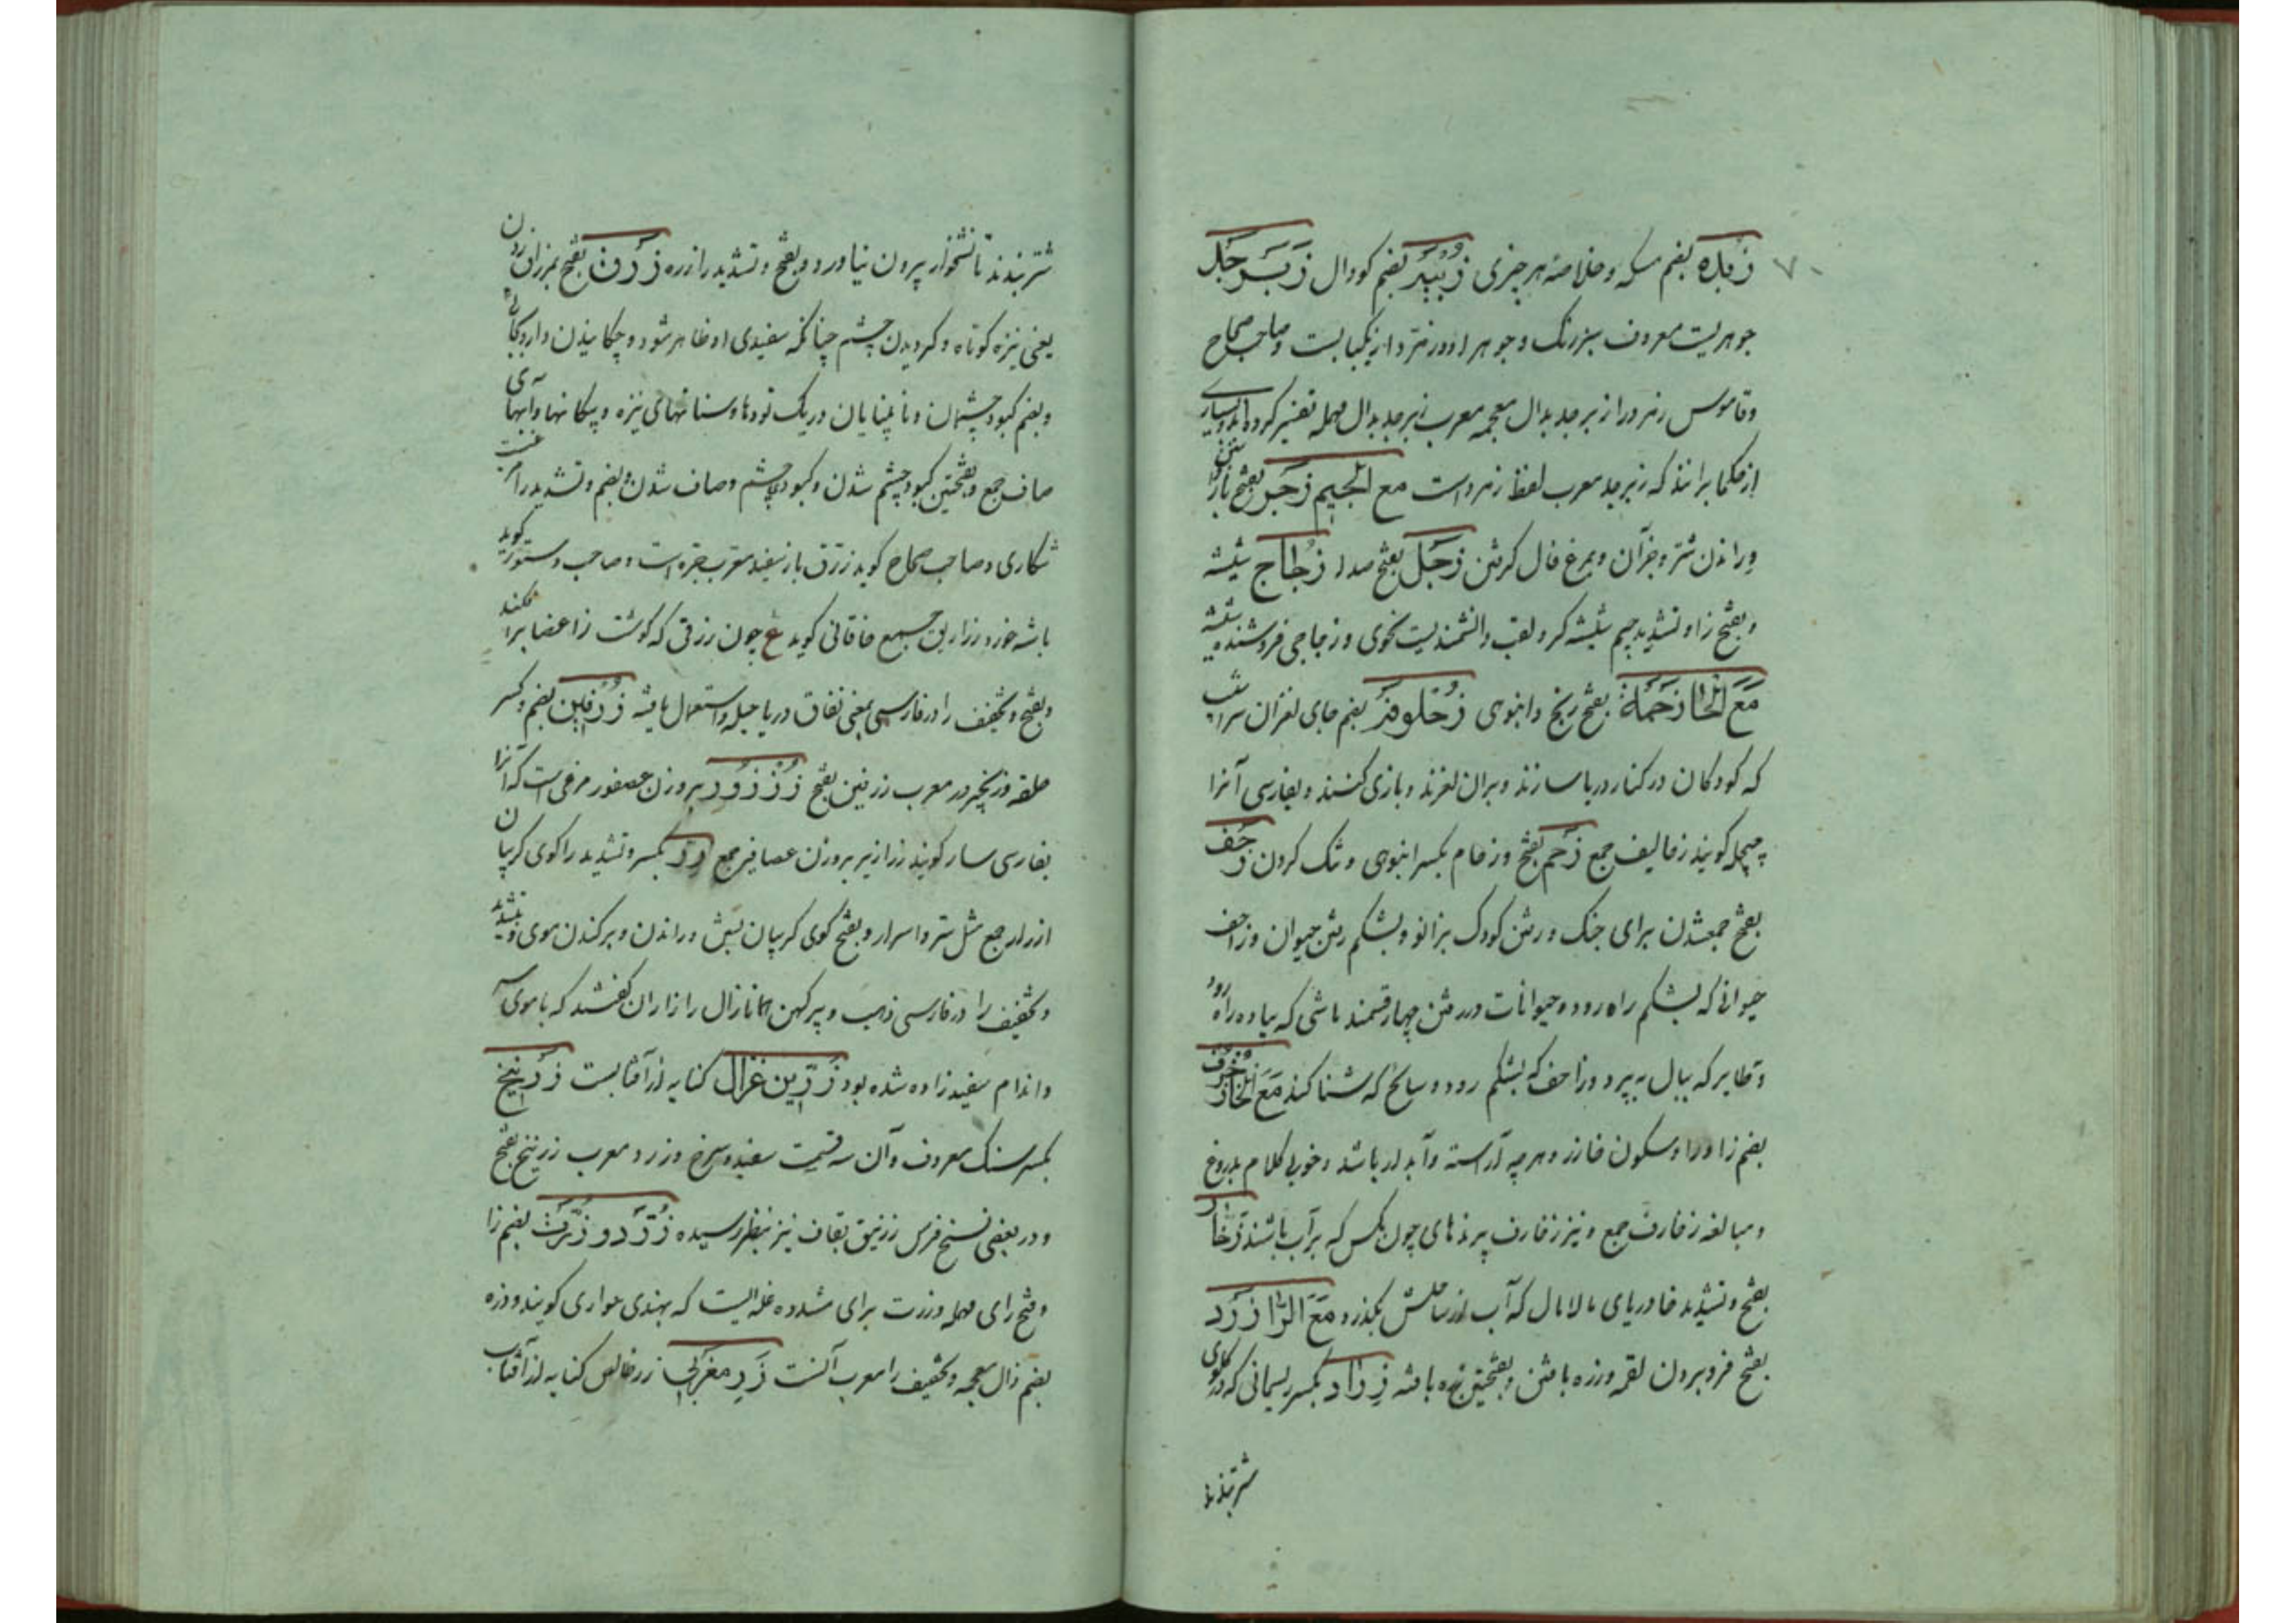 زبده بضم مسکه و خلاصهٔ هر چیزی زُبَید بضم کو دال زَبَرجَد
جوهریست معروف سبز رنک و جوهر او در زمرد از یکبابست و صاحب صحاح
و قاموس زمرد را زبرجد بدال معجمه معرب زبرجد بدال مهمله تفسیر کرده اند و بسیاری
از حکما برانند که زبرجد معرب لفظ زمرد است مع الجیم زَجر بفتح باز
و راندن شتر و خر آن و بمرغ فال کرفتن زَجَل بفتح صدا زُجاج شیشه
و بفتح زا و تشدید جیم شیشه کر و لقب دانشمندیست نحوی و زجاجی فروشنده شیشه
مَعَ الحَا زَحمَة بفتح رنج و انبوهی زُحلوفه بضم جای لغزان سراشیب
که کودکان در کنار دریا سازند و بران لغزند و بازی کنند و بفارسی آنرا
کویند زحالیف جمع زَحم بفتح و زحام بکسر انبوهی و تنک کردن زَحف
بفتح جمع شدن برای جنک و رفتن کودک بزانو و بشکم رفتن حیوان و زاحف
حیوانی که بشکم راه رود و حیوانات در رفتن چهار قسمند ماشی که بپا و ره راه رود
و طایر که ببال بپرد و زاحف که بشکم رود و سابح که شنا کند مَعَ الخَا زُخرُف
بضم زا و را و سکون خا زر و هر چه آراسته و آبدار باشد و خوبی کلام بدروغ
و مبالغه زخارف جمع و نیز زخارف پرندهای چون مکس که بر آب باشند زَخّار
بفتح و تشدید خا دریای مالامال که آب از ساحلش بکذرد مَعَ الرّا زَرد
بفتح فرو بردن لقمه و زره بافتن و بفتحتین زره بافته زِراد بکسر ریسمانی که در کلوی
شتر بندند
شتر بندند تا نشخوار بیرون نیاورد و بفتح و تشدید را زره زَرق بفتح
یعنی نیزه کوتاه و کردیدن چشم چنانکه سفیدی او ظاهر شود و چکانیدن دارو
و بضم کبود چشمان و نابینایان و ریک تودها و سنانهای نیزه و پیکانها و آبهای
صاف جمع و بفتحتین کبود چشم شدن و کبود چشم و صاف شدن و بضم و تشدید را
شکاری و صاحب صحاح کوید زرق باز سفید معرب جره است و صاحب دستور کوید
باشه خورد زراریق جمع خاقانی کوید ع چون زرقی که کوشت ز اعضا برا فکند
و بفتح و تخفیف را در فارسی بمعنی نفاق و ریا و حیله استعمال یافته زُرفین بضم و کسر
حلقه زنجیر در معرب زرفین بفتح زُرزُور بر وزن عصفور مرغیست که آنرا
بفارسی سار کویند زرازیر بر وزن عصافیر جمع زِر بکسر و تشدید را کوی کریبان
ازرار جمع مثل ستر و اسرار و بفتح کوی کریبان بستن و راندن و برکندن موی
و تخفیف را در فارسی ذهب و پیر کهن همانا زال را زال ازان کفتند که با موی
و اندام سفید زاده شده بود زَرّین غزال کنایه از آفتابست زَرنیخ
بکسر سنک معروف و آن سه قسمست سفید و سرخ و زرد معرب زرنیخ بفتح
و در بعضی نسخ فرس زرنیق بقاف نیز بنظر رسیده بضم زا
و فتح رای مهمله و زرت برای مشدده غله ایست که بهندی جواری کویند و ذره
بضم ذال معجمه و تخفیف را معرب آنست زَرِ مغربی زر خالص کنایه از آفتاب